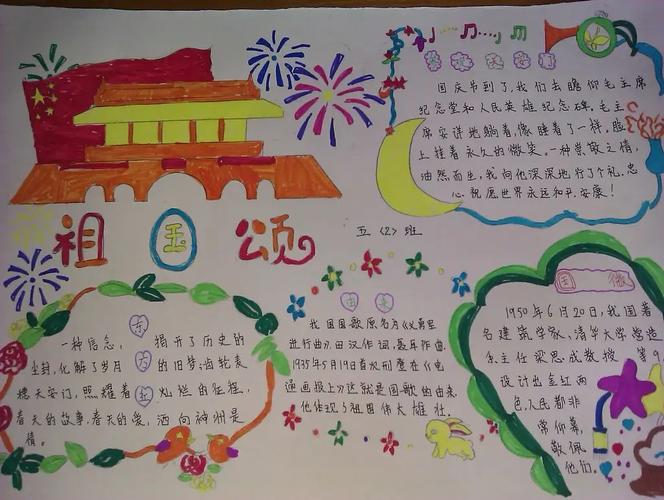 祖国颂
五〈2〉班
国庆节到了,我们去瞻仰毛主席
纪念堂和人民英雄纪念碑。毛主
席安详地躺着,像睡着了一样,脸
上挂着永久的微笑。一种崇敬之情,
油然而生,我向他深深地行了个礼,忠
心祝愿世界永远和平、安康!
一种信念,
揭开了历史的
尘封,化解了岁月
的旧梦;齿轮表
穗天安门,照耀着
灿烂的征程,
春天的故事,春天的爱,洒向神州是
情。
我国国歌原名为《义勇军
进行曲》,田汉作词,聂耳作曲。
1935年5月19首次刊登在《电
通画报上》,这就是国歌的由来,
他体现了祖国伟大雄壮。
国徽
1950年6月20日,我国著
名建筑学家、清华大学营造
系主任梁思成教授
第9
设计出金红两
色,人民都非
常仰慕,
敬佩
他们。